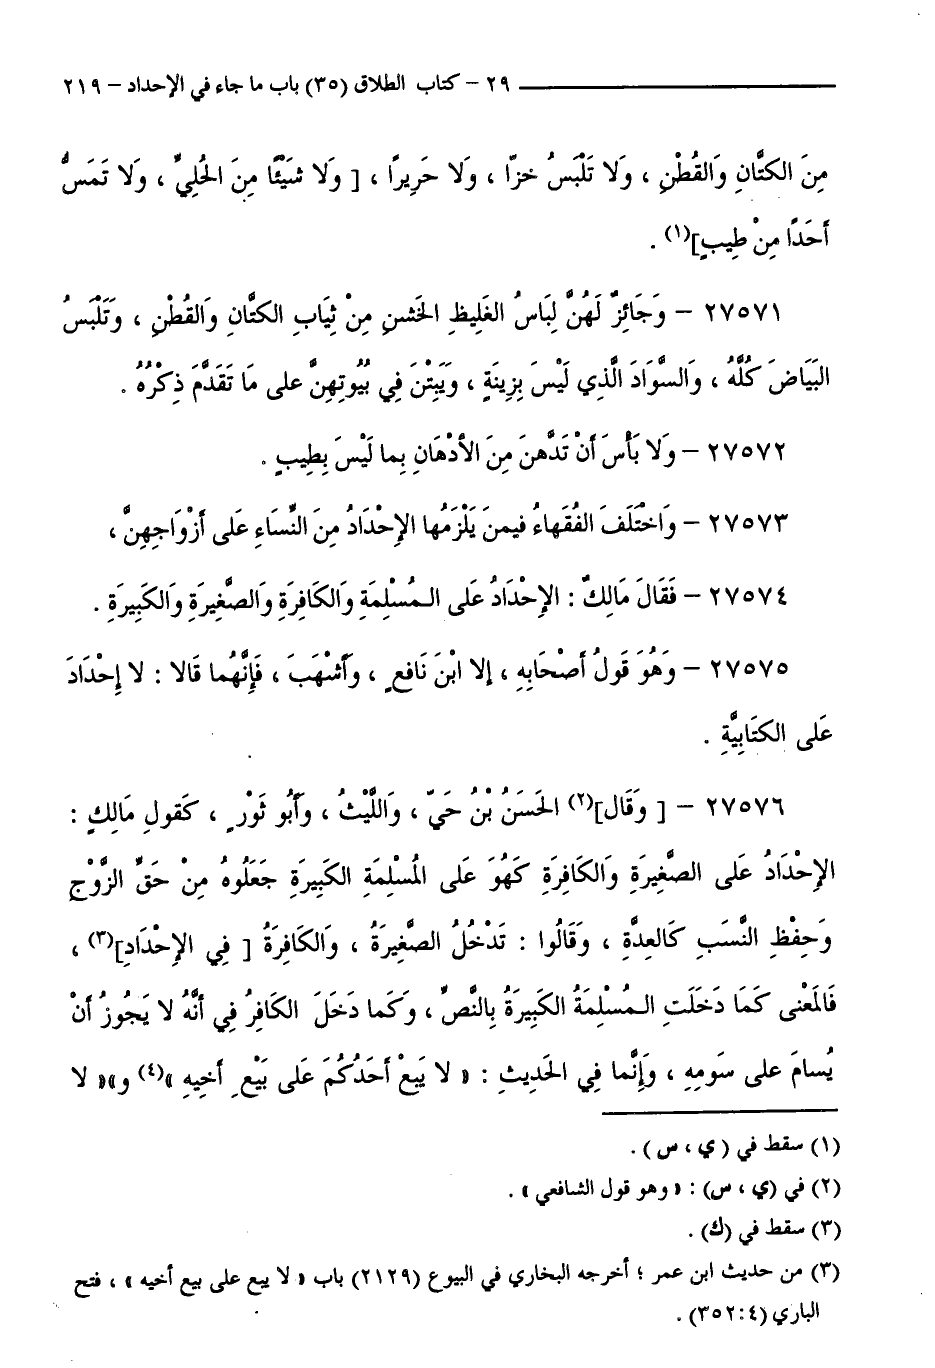 ٢٩ – كتاب الطلاق (٣٥) باب ما جاء في الإحداد – ٢١٩
مِنَ الكَتَّانِ وَالقُطْنِ ، وَلا تَلْبَسُ خزّا ، وَلا حَرِيرًا ، [ وَلا شَيْئًا مِنَ الحُلِيِّ ، وَلا تَمَسُّ
أَحَدًا مِنْ طِيبٍ](١) .
٢٧٥٧١ – وَجَائِزٌ لَهُنَّ لِبَاسُ الغَلِيظِ الخَشنِ مِنْ ثِيَابِ الكتَّانِ وَالقُطْنِ ، وَتَلْبَسُ
البَيَاضَ كُلَّهُ ، وَالسَّوَادَ الَّذِي لَيْسَ بِزِينَةٍ ، وَيَبِتْنَ فِي بُيُوتِهِنَّ على مَا تَقَدَّمَ ذِكْرُهُ .
٢٧٥٧٢ – وَلا بَأْسَ أَنْ تَدَّهنَ مِنَ الأَدْهَانِ بِما لَيْسَ بِطِيبٍ .
٢٧٥٧٣ – وَاخْتَلَفَ الفُقَهاءُ فيمنَ يَلْزَمُها الإِحْدَادُ مِنَ النِّسَاءِ عَلى أَزْوَاجِهِنَّ ،
٢٧٥٧٤ – فَقَالَ مَالِكٌ : الإِحْدَادُ عَلى المُسْلِمَةِ وَالكَافِرَةِ وَالصَّغِيرَةِ وَالكَبِيرَةِ .
٢٧٥٧٥ – وَهُوَ قَولُ أَصْحَابِهِ ، إلا ابْنَ نَافعٍ ، وَأَشْهَبَ ، فَإِنَّهُما قَالا : لا إِحْدَادَ
عَلى الكتَابِيَّةِ .
٢٧٥٧٦ – [ وَقَال](٢) الحَسَنُ بْنُ حَيّ ، وَاللَّيْثُ ، وَأَبُو ثَوْرٍ ، كَقولِ مَالِكٍ :
الإِحْدَادُ عَلى الصَّغِيرَةِ وَالكَافِرَةِ كَهُوَ عَلى المُسْلِمَةِ الكَبِيرَةِ جَعَلُوهُ مِنْ حَقِّ الزَّوْجِ
وَحِفْظِ النَّسَبِ كَالعِدَّةِ ، وَقَالُوا : تَدْخُلُ الصَّغِيرَةُ ، وَالكَافِرَةُ [ فِي الإِحْدَادِ](٣) ،
فَالمَعْنى كَمَا دَخَلَتِ المُسْلِمَةُ الكَبِيرَةُ بِالنَّصِّ ، وَكَما دَخَلَ الكَافِرُ فِي أَنَّهُ لا يَجُوزُ أَنْ
يُسامَ على سَومِهِ ، وَإِنَّما فِي الحَدِيثِ : « لا يَبِعْ أَحَدُكُمَ عَلى بَيْعِ أَخِيهِ »(٤) و»« لا
(١) سقط في ( ي ، س ) .
(٢) في (ي ، س) : « وهو قول الشافعي » .
(٣) سقط في (ك) .
(٣) من حديث ابن عمر ؛ أخرجه البخاري في البيوع (٢١٢٩) باب « لا يبع على بيع أخيه » ، فتح
الباري (٣٥٢:٤) .